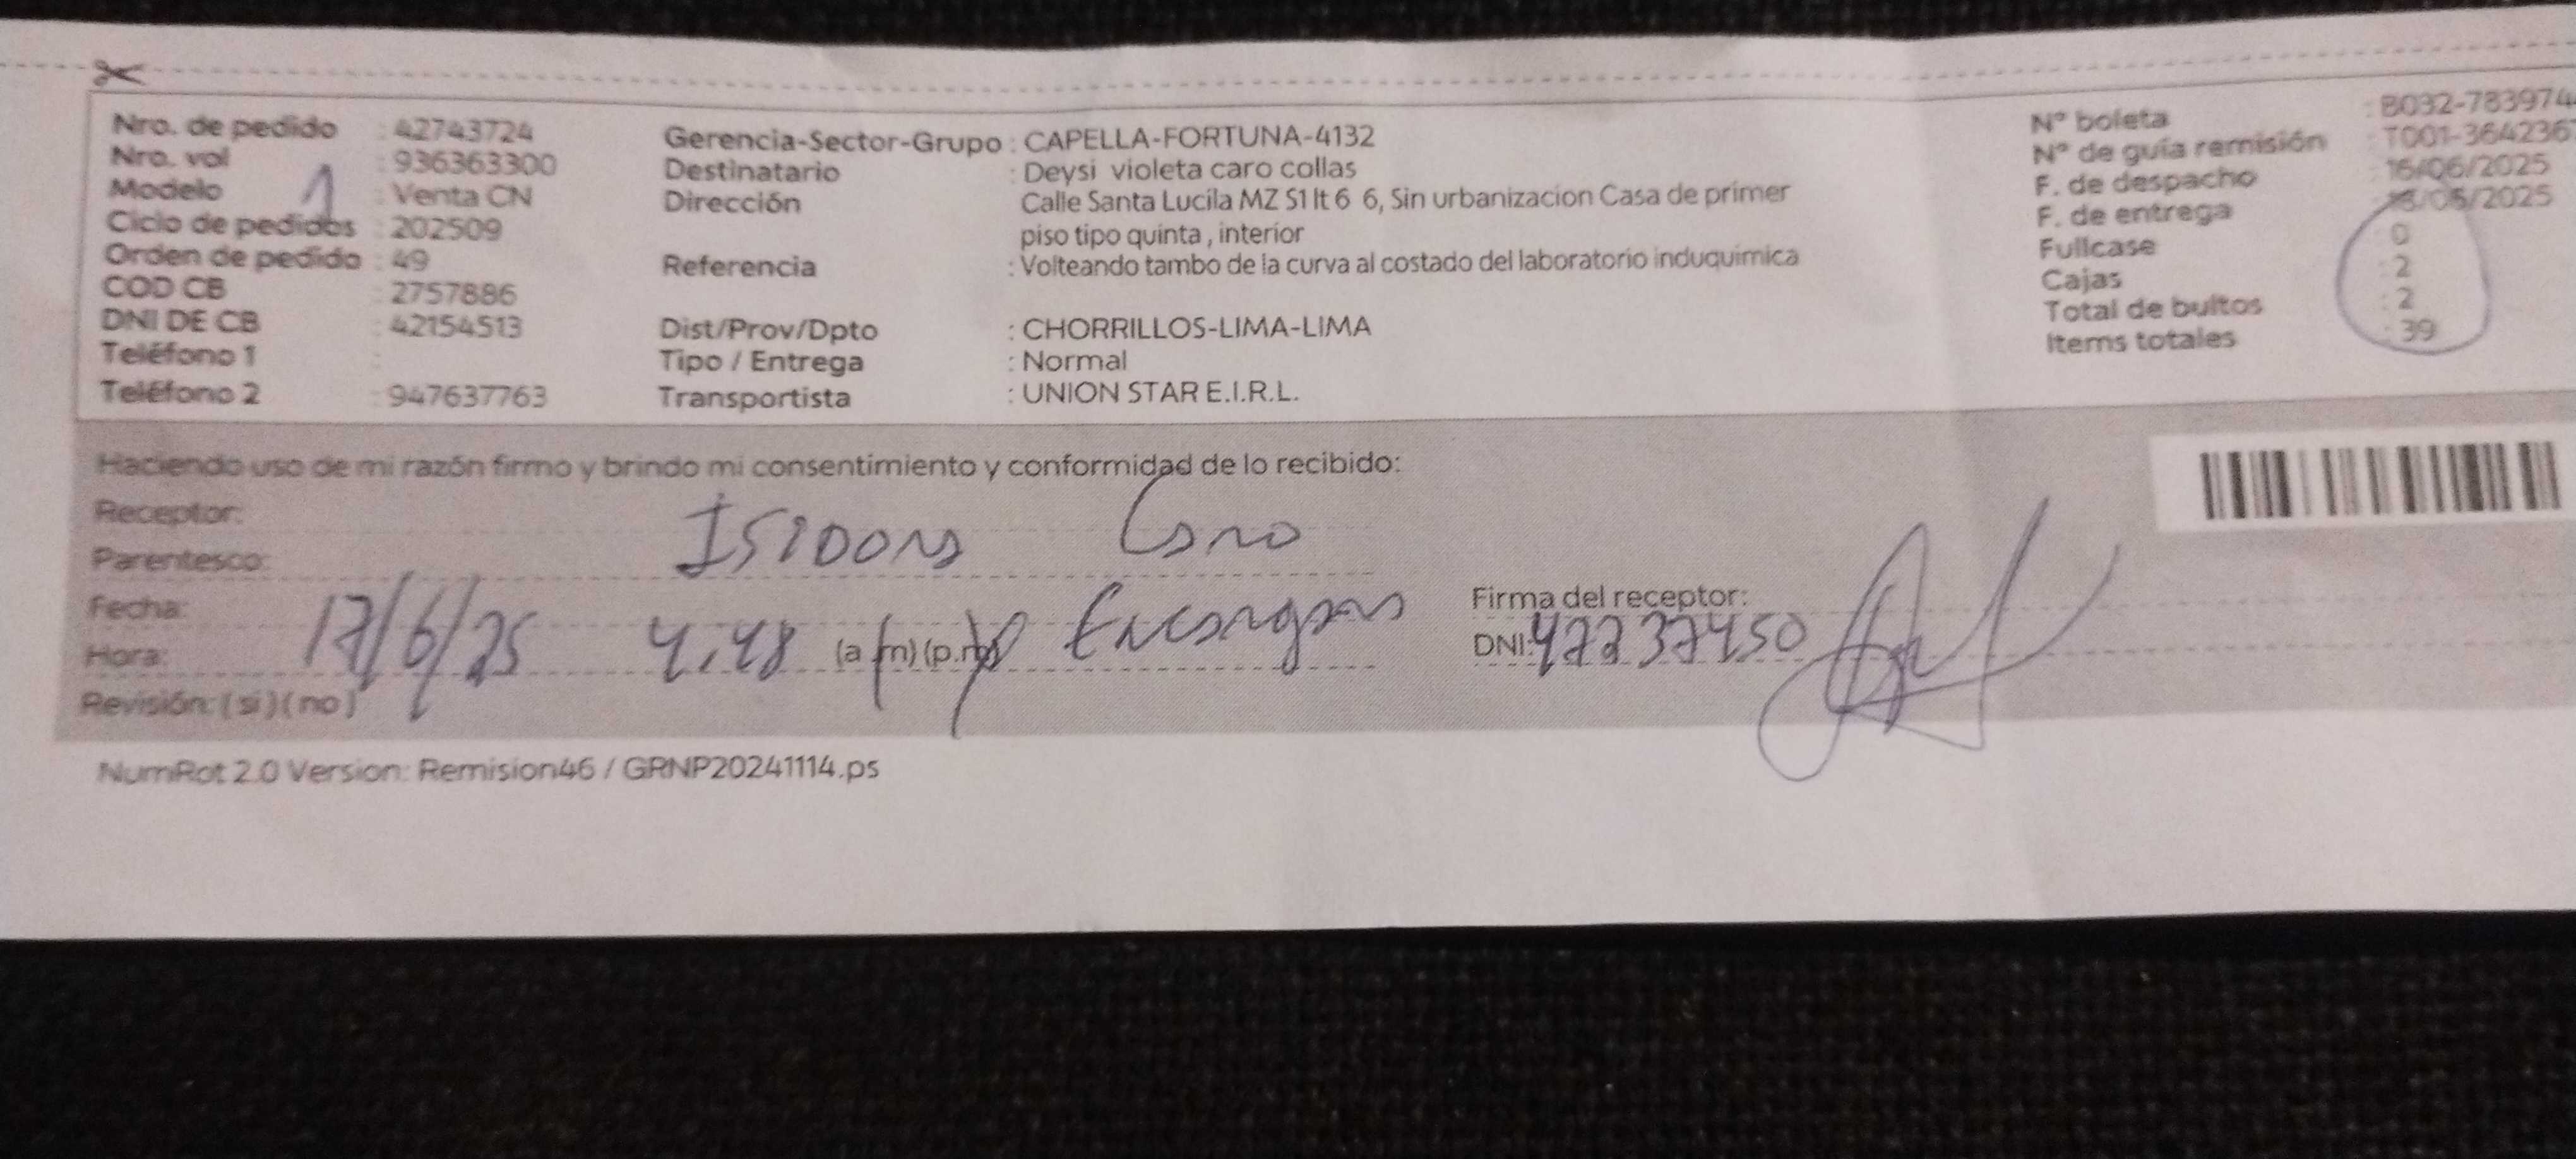 Nro. de pedido : 42743724
Nro. vol : 936363300
Modelo : Venta CN
1
Ciclo de pedidos : 202509
Orden de pedido : 49
COD CB : 2757886
DNI DE CB : 42154513
Teléfono 1 :
Teléfono 2 : 947637763
Gerencia-Sector-Grupo : CAPELLA-FORTUNA-4132
Destinatario : Deysi violeta caro collas
Dirección : Calle Santa Lucila MZ S1 lt 6 6, Sin urbanizacion Casa de primer
piso tipo quinta , interior
Referencia : Volteando tambo de la curva al costado del laboratorio induquimica
Dist/Prov/Dpto : CHORRILLOS-LIMA-LIMA
Tipo / Entrega : Normal
Transportista : UNION STAR E.I.R.L.
N° boleta : B032-783974
N° de guía remisión : T001-364236
F. de despacho : 16/06/2025
F. de entrega
Fullcase : 0
Cajas : 2
Total de bultos : 2
Items totales : 39
Haciendo uso de mi razón firmo y brindo mi consentimiento y conformidad de lo recibido:
Receptor: Isidora Caro
Parentesco:
Fecha: 17/6/25
Hora: 4.48 (a.m)(p.m)
Revisión: ( si ) ( no )
Firma del receptor:
DNI:
NumRot 2.0 Version: Remision46 / GRNP20241114.ps